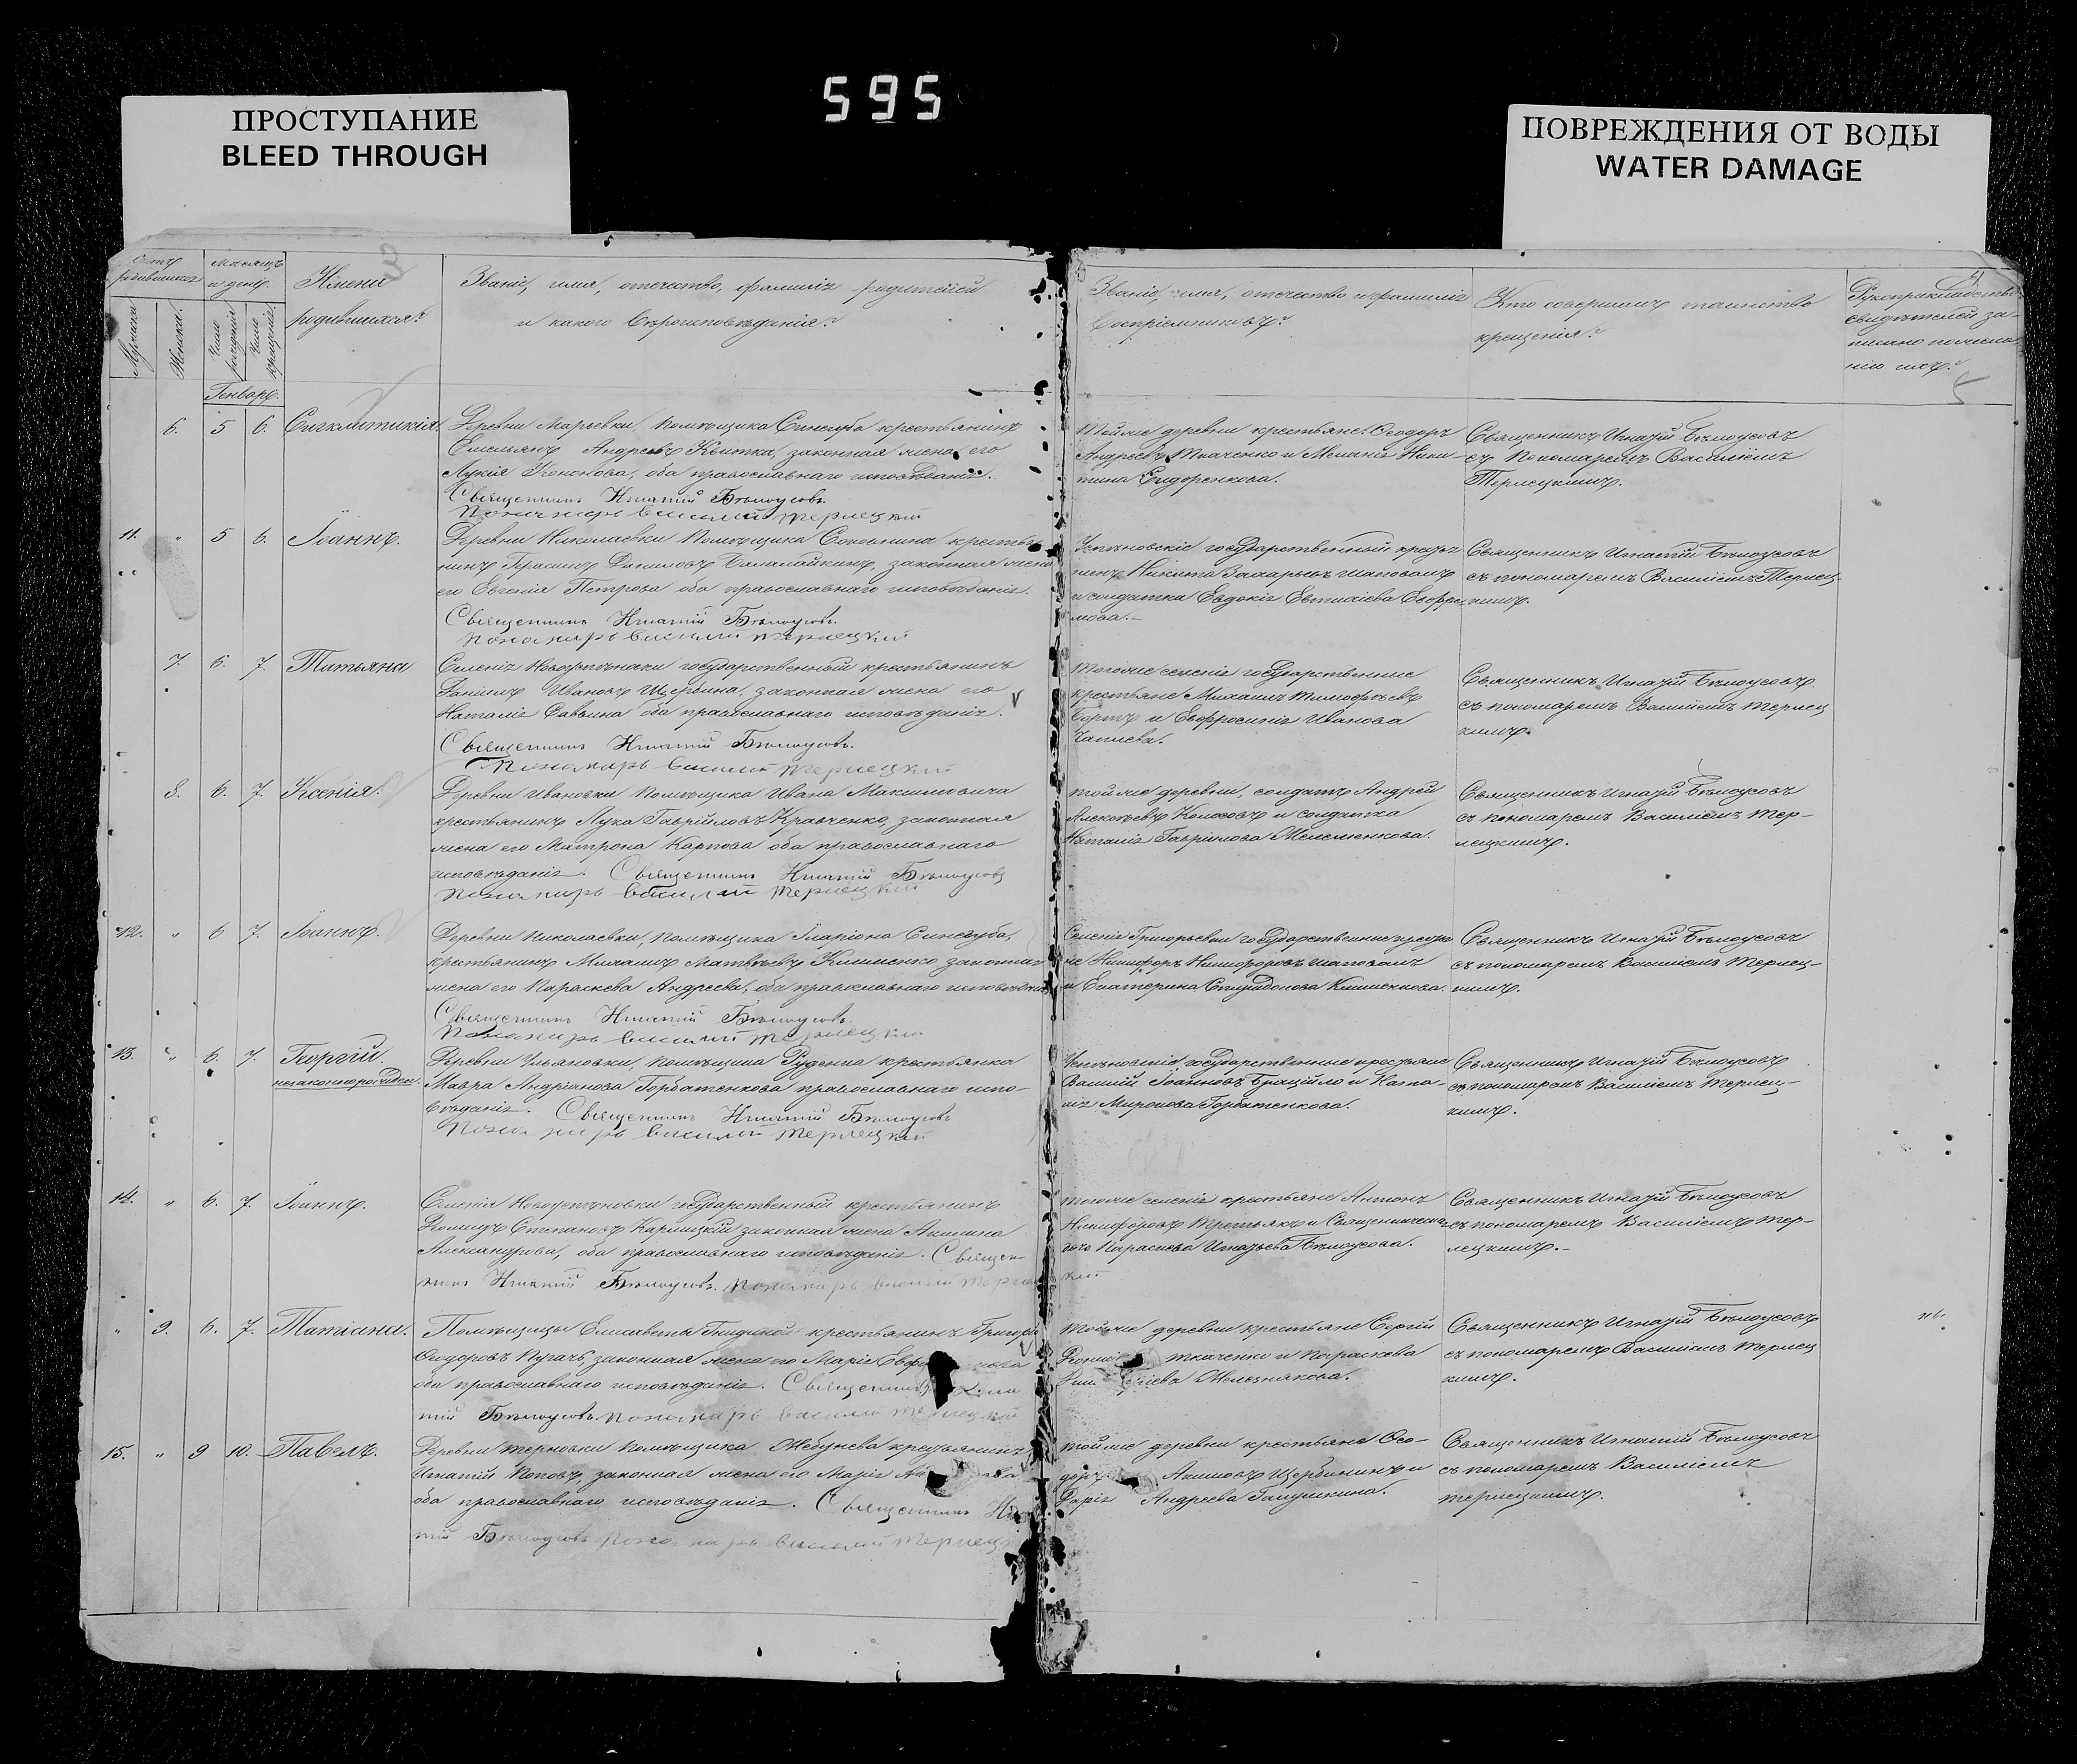 595
ПРОСТУПАНИЕ
BLEED THROUGH
ПОВРЕЖДЕНИЯ ОТ ВОДЫ
WATER DAMAGE
Счетъ родившихся
Мужска
Женска.
месяцъ и день.
Число рожденія
Число крещенія
Имена
родившихся?
Званіе, имя, отчество, фамилія родителей
и какого вѣроисповѣданія?
Званіе, имя, отчество и фамилія
воспріемниковъ?
Кто совершилъ таинство
крещенія?
Рукоприкладство
свидѣтелей за-
писано по жела-
нію ихъ?
Генварь.
6. 5 6. Сигклитикія.
Деревни Марьевки, помѣщика Синегуба крестьянинъ
Емельянъ Андреевъ Квитка, законная жена его
Лукія Кононова, оба православнаго исповѣданія.
Священникъ Игнатій Бѣлоусовъ
Пономарь Василий Терлецкий
Тойже деревни крестьяне: Ѳеодоръ
Андреевъ Ткаченко и Меланія Ники
тина Сидоренкова.
Священникъ Игнатій Бѣлоусовъ
съ пономаремъ Василіемъ
Терлецкимъ.
11. " 5 6. Іоаннъ.
Деревни Николаевки помѣщика крестья
нинъ Герасимъ Даниловъ Балалайкинъ, законная жена
его Евгенія Петрова оба православнаго исповѣданія.
Священникъ Игнатій Бѣлоусовъ
Пономарь Василий Терлецкий
Успѣновскіе государственный крестья
нинъ Никита Захарьевъ Шаповалъ
и солдатка Евдокія Евфре
мова.-
Священникъ Игнатій Бѣлоусовъ
съ пономаремъ Василіемъ Терлец-
кимъ.
7. 6. 7. Татьяна
Селенія государственный крестьянинъ
Даніилъ Ивановъ Щербина, законная жена его
Наталія Саввина оба православнаго исповѣданія.
Священникъ Игнатій Бѣлоусовъ.
Пономарь Василий Терлецкий
Тогоже селенія государственные
крестьяне Михаилъ Тимофѣевъ
Бортъ и Евфросинія Иванова
Чаплева.
Священникъ Игнатій Бѣлоусовъ
съ пономаремъ Василіемъ Терлец
кимъ.
8. 6. 7. Ксенія.
Деревни Ивановки помѣщика Ивана Максимовича
крестьянинъ Лука Гавріиловъ Кравченко, законная
жена его Матрона Карпова оба православнаго
исповѣданія. Священникъ Игнатій Бѣлоусовъ
Пономарь Василий Терлецкий
Тойже деревни, солдатъ Андрей
Алексѣевъ Колосовъ и солдатка
Наталія Гавріилова
Священникъ Игнатій Бѣлоусовъ
съ пономаремъ Василіемъ Тер-
лецкимъ.
12. " 6 7. Іоаннъ.
Деревни Николаевки, помѣщика Иларіона Синегуба,
крестьянинъ Михаилъ Матвѣевъ Клименко законная
жена его Параскева Андреева, оба православнаго исповѣданія
Священникъ Игнатій Бѣлоусовъ.
Пономарь Василий Терлецкий
Селенія Григорьевки государственные крестья
не Никифоръ Никифоровъ Шаповалъ
и Екатерина Спиридонова Клименкова.
Священникъ Игнатій Бѣлоусовъ
съ пономаремъ Василіемъ Терлец-
кимъ.
13. " 6. 7. Георгій.
незаконнорожден.
Деревни Ульяновки, помѣщика Руденка крестьянка
Мавра Андріанова Горбатенкова православнаго испо-
вѣданія. Священникъ Игнатій Бѣлоусовъ
Пономарь Василий Терлецкий
Успѣновскіе, государственные крестьяне
Василій Іоанновъ и
Миронова Горбатенкова.
Священникъ Игнатій Бѣлоусовъ
съ пономаремъ Василіемъ Терлец-
кимъ.
14. " 6. 7. Іоаннъ.
Селенія Новоуспѣновки государственный крестьянинъ
Діомидъ Степановъ законная жена Акилина
Александрова, оба православнаго исповѣданія. Священ-
никъ Игнатій Бѣлоусовъ. Пономарь Василий Терлецкий
Тогоже селенія крестьяне Антонъ
Никифоровъ Третьякъ и Священническая
дочь Параскева Игнатьева Бѣлоусова.
Священникъ Игнатій Бѣлоусовъ
съ пономаремъ Василіемъ Тер-
лецкимъ.-
" 9. 6. 7. Татіана.
Помѣщицы Елисаветы крестьянинъ Григорій
Ѳеодоровъ Пугачъ, законная жена его Марія
оба православнаго исповѣданія. Священникъ Игна
тій Бѣлоусовъ Пономарь Василий Терлецкий
Тойже деревни крестьяне Сергій
Ткаченко и Параскева
Железнякова.
Священникъ Игнатій Бѣлоусовъ
съ пономаремъ Василіемъ Терлец
кимъ.
15. " 9 10. Павелъ.
Деревни Терновки помѣщика крестьянинъ
Игнатій Поповъ, законная жена его Марія
оба православнаго исповѣданія. Священникъ Игна
тій Бѣлоусовъ Пономарь Василий Терлецкий
Тойже деревни крестьяне Ѳео-
доръ Акимовъ Щербининъ и
Дарія Андреева Галушкина.
Священникъ Игнатій Бѣлоусовъ
съ пономаремъ Василіемъ
Терлецкимъ.